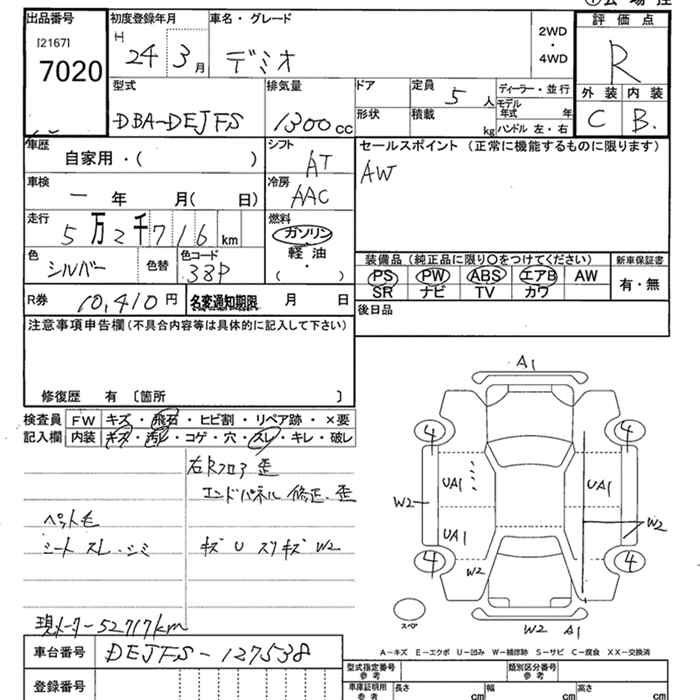 出品番号
[2167]
7020
初度登録年月
H
24 3月
車名・グレード
デミオ
2WD
・
4WD
評価点
R
外装 内装
C B.
型式
DBA-DEJFS
排気量
1300cc
ドア
形状
定員 5人
積載 kg
ディーラー・並行
モデル
年式 年
ハンドル 左・右
車歴
自家用・( )
シフト
AT
セールスポイント (正常に機能するものに限ります)
AW
車検
一 年 月( 日)
冷房
AAC
走行
5万2千716km
燃料
ガソリン
軽油
( ・ )
色
シルバー
色替
色コード
38P
装備品 (純正品に限り○をつけてください)
PS PW ABS エアB AW
SR ナビ TV カワ
新車保証書
有・無
R券 10,410円
名変通知期限 月 日
後日品
注意事項申告欄(不具合内容等は具体的に記入して下さい)
修復歴 有 〔箇所 〕
検査員
記入欄
FW キズ・飛石・ヒビ割・リペア跡・×要
内装 キズ・汚レ・コゲ・穴・スレ・キレ・破レ
右Rフロア歪
エンドパネル修正、歪
ペット毛
シート スレ・シミ
キズ U スリキズ W2
現メーター52717km
車台番号 DEJFS-127538
登録番号
A1
4 4
UA1 UA1
W2
UA1
W2
4 4
W2
スペア
W2 A1
A-キズ E-エクボ U-凹み W-補修跡 S-サビ C-腐食 XX-交換済
型式指定番号
参考
類別区分番号
参考
車庫証明用
参考
長さ cm
幅 cm
高さ cm